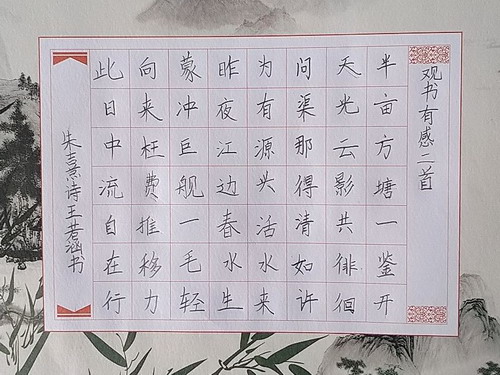 观书有感二首
半亩方塘一鉴开
天光云影共徘徊
问渠那得清如许
为有源头活水来
昨夜江边春水生
蒙冲巨舰一毛轻
向来枉费推移力
此日中流自在行
朱熹诗王若涵书